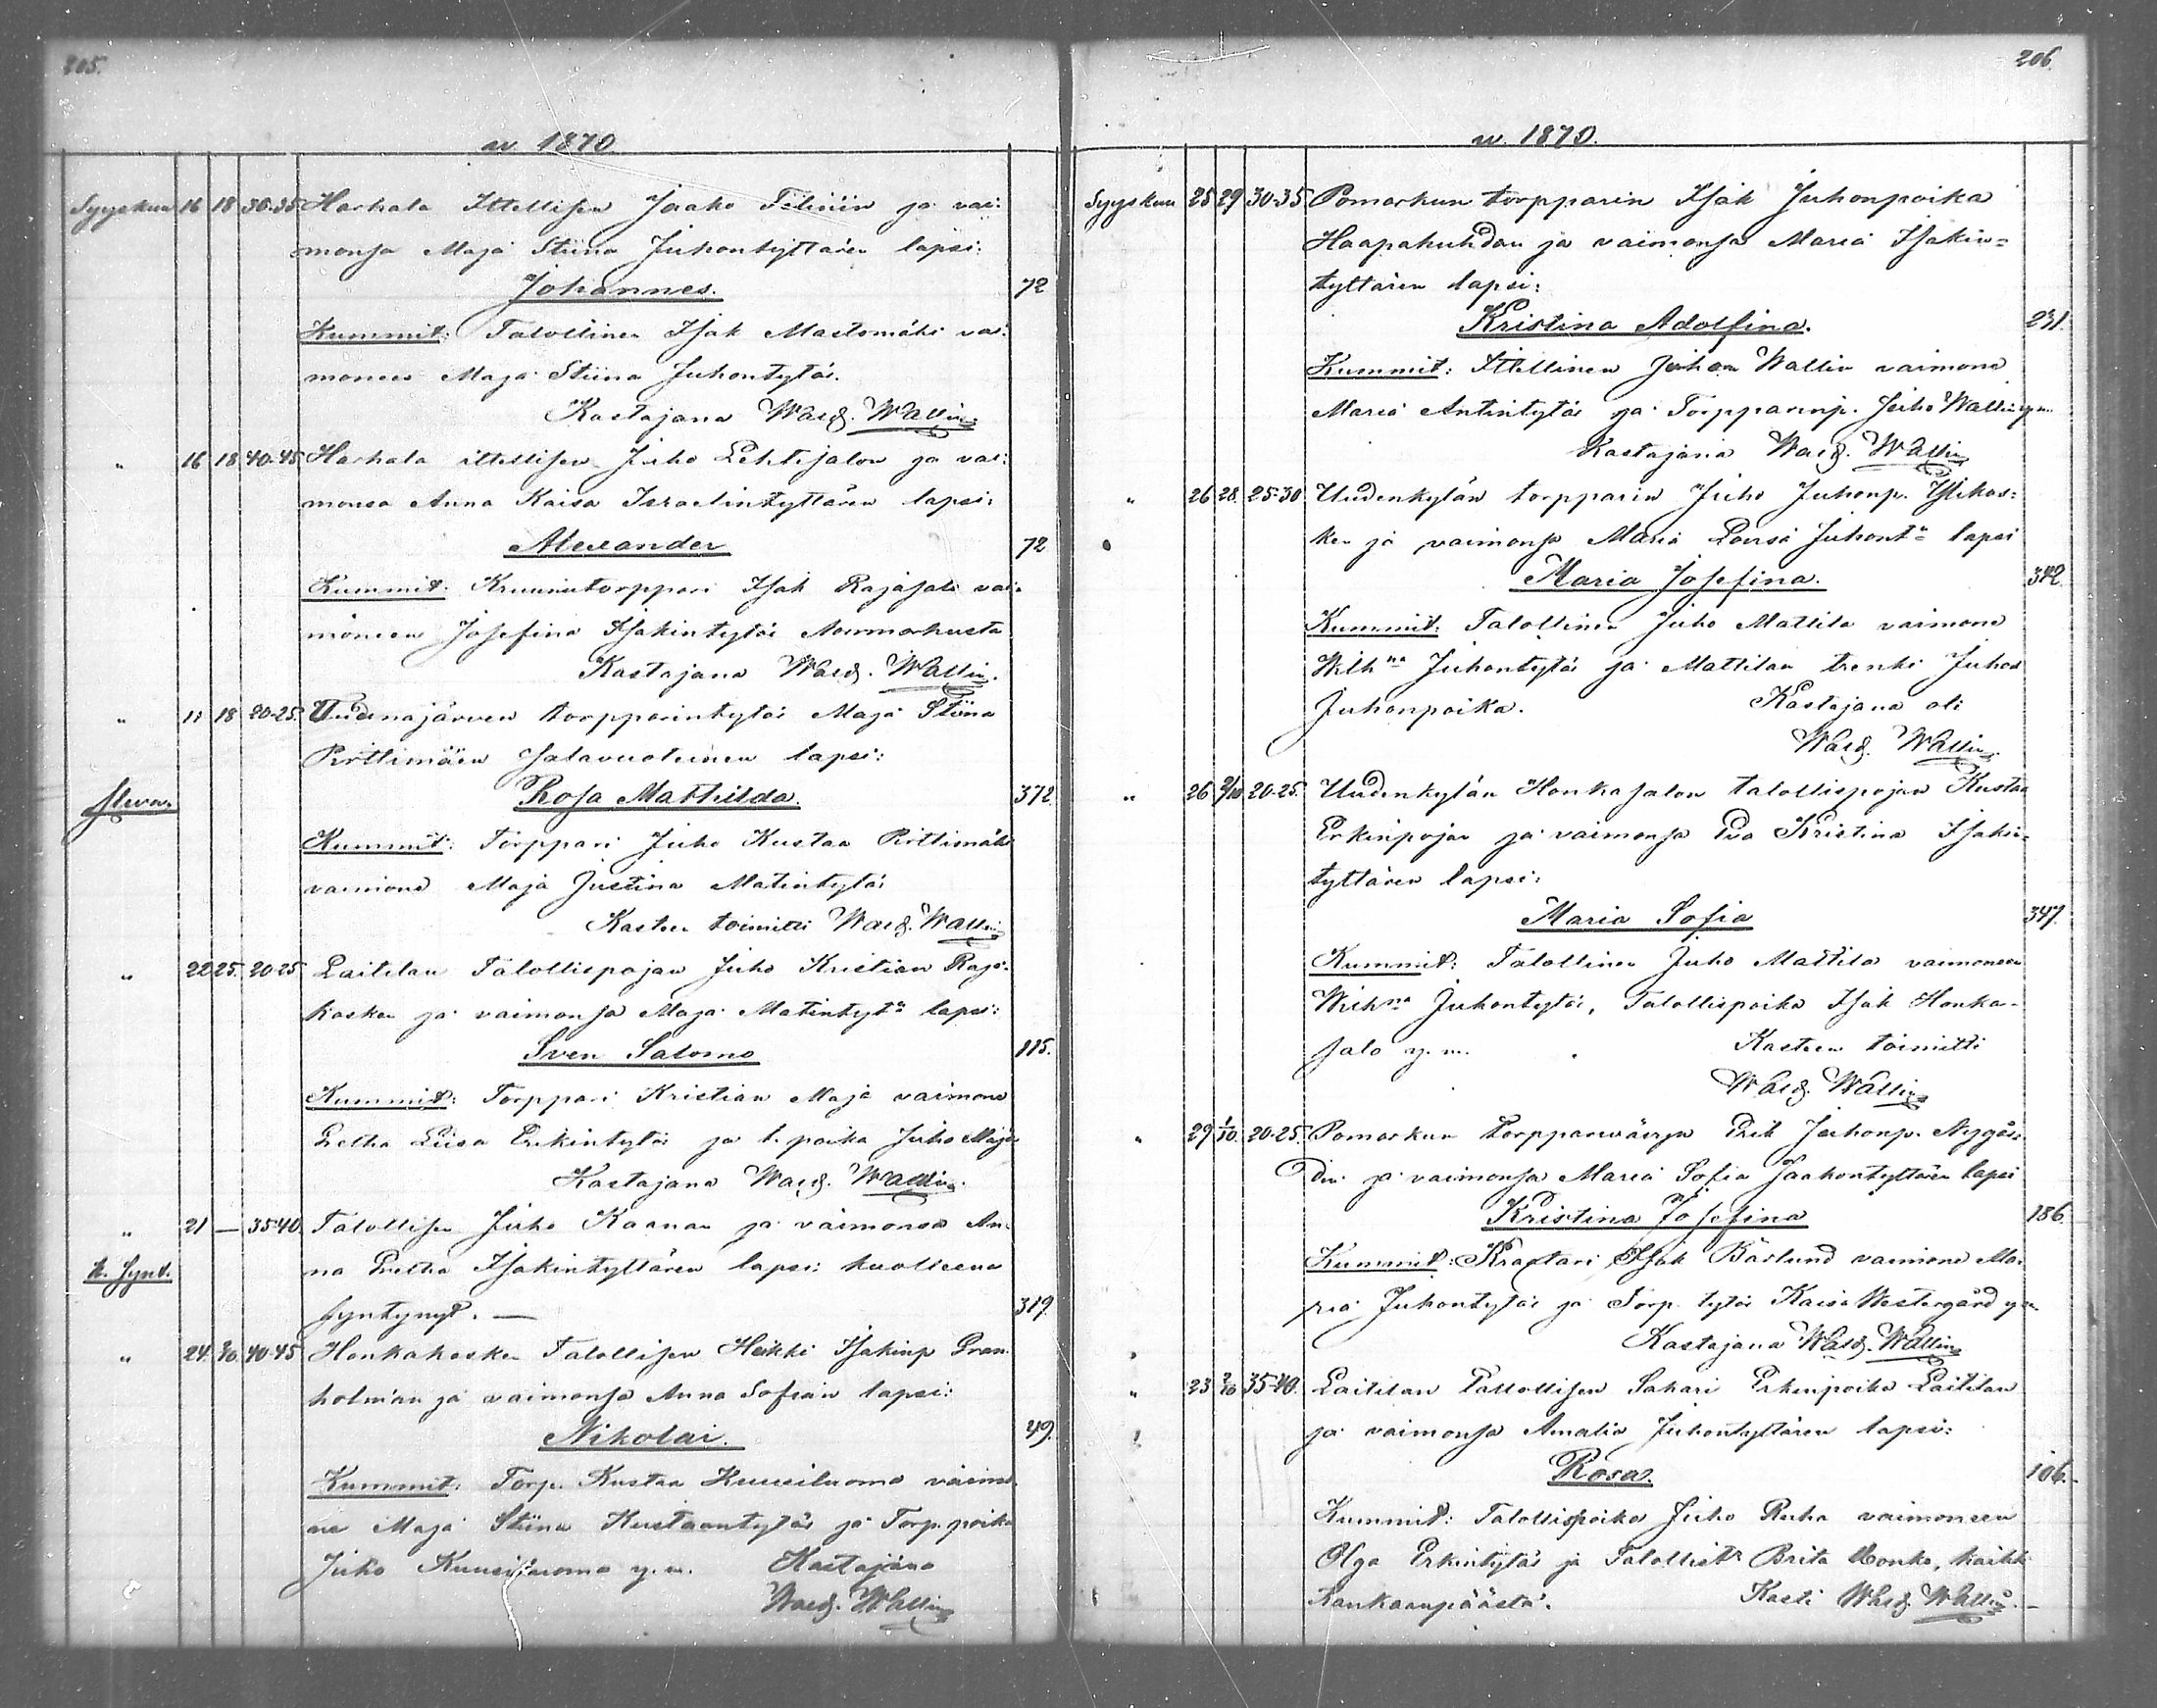 205.
w. 1870.
Syyskuu 16 18 30-35 Harhala Ittellisen Jaako Felinin ja vai-
monsa Maja Stiina Juhontyttären lapsi:
Johannes. 72
Kummit: Talollinen Isak Mastomäki vai-
moneen Maja Stiina Juhontytär.
Kastajana Wald. Wallin
" 16 18 40-45 Harhala ittellisen Juho Lehtisalon ja vai-
monsa Anna Kaisa Israelintyttären lapsi:
Alexander 72
Kummit: Kruunutorppari Isak Rajasalo vai-
moneen Josefina Isakintytär Normarkusta
Kastajana Wald. Wallin.
" 11 18 20-25. Uudenajärven torpparintytär Maja Stiina
Pirttimäen salavuoteinen lapsi:
Rosa Mathilda. 372.
Kummit: Torppari Juho Kustaa Pirttimäki
vaimons Maja Justina Matintytär
Kasteen toimitti Wald. Wallin
" 22 25. 20-25 Laitilan Talollispojan Juho Kristian Raja-
kosken ja vaimonsa Maja Matintytä lapsi:
Sven Salomo 115.
Kummit: Torppari Kristian Maja vaimons
Gretha Liisa Erkintytär ja t. poika Juho Maja
Kastajana Wald. Wallin.
" 21 — 35-40. Talollisen Juho Kaanan ja vaimonsa An-
k. Synt. na Gretha Isakintyttären lapsi: kuolleena
syntynyt. — 319.
" 24. 40-45 Honkakosken Talollisen Heikki Isakinp Gran-
holman ja vaimonsa Anna Sofian lapsi:
Nikolai. 49.
Kummit: Torp. Kustaa Kuusiluoma vaimo-
ne Maja Stiina Kustaantytär ja Torp. poika
Juho Kuusiluoma y. m. Kastajana
Wald. Wallin
206.
w. 1870.
Syyskuu 25 29 30-35 Pomarkun torpparin Isak Juhonpoika
Haapakuhdan ja vaimonsa Maria Isakin-
tyttären lapsi:
Kristina Adolfina. 231.
Kummit: Ittellinen Juhan Wallin vaimons
Maria Antintytär ja Torpparinp. Juho Wallin ym.
Kastajana Wald. Wallin
" 26 28. 25-30 Uudenkylän torpparin Juho Juhonp. Ylikos-
ken ja vaimonsa Maria Lovisa Juhontä lapsi
Maria Josefina. 342.
Kummit: Talollinen Juho Mattila vaimons
Wilhna Juhontytär ja Mattilan trenki Juhos
Juhonpoika. Kastajana oli
Wald. Wallin.
" 26 2/10 20-25. Uudenkylän Honkasalon talollispojan Kustaa
Erkinpojan ja vaimonsa Eva Kristina Isakin-
tyttären lapsi:
Maria Sofia 347.
Kummit: Talollinen Juho Mattila vaimoneen
Wilhna Juhontytär, Talollispoika Isak Honka-
salo y. m. Kasteen toimitti
Wald. Wallin
" 29 1/10. 20-25. Pomarkun torpparwäsyn Erik Juhonp. Nygår-
din ja vaimonsa Maria Sofia Jaakontyttären lapsi
Kristina Josefina 186.
Kummit: Kraatari Isak Bärlund vaimons Ma-
ria Juhontytär ja Torp. tytär Kaisa Westergård ym
Kastajana Wald. Wallin
" 23 2/10 35-40. Laitilan Talollisen Sakari Erkinpoika Laitilan
ja vaimonsa Amalia Juhontyttären lapsi:
Rosa. 106.
Kummit: Talollispoika Juho Ruha vaimoneen
Olga Erkintytär ja Talollist. Brita Honko, kaikk
Kankaanpäästä. Kasti Wald. Wallin. —